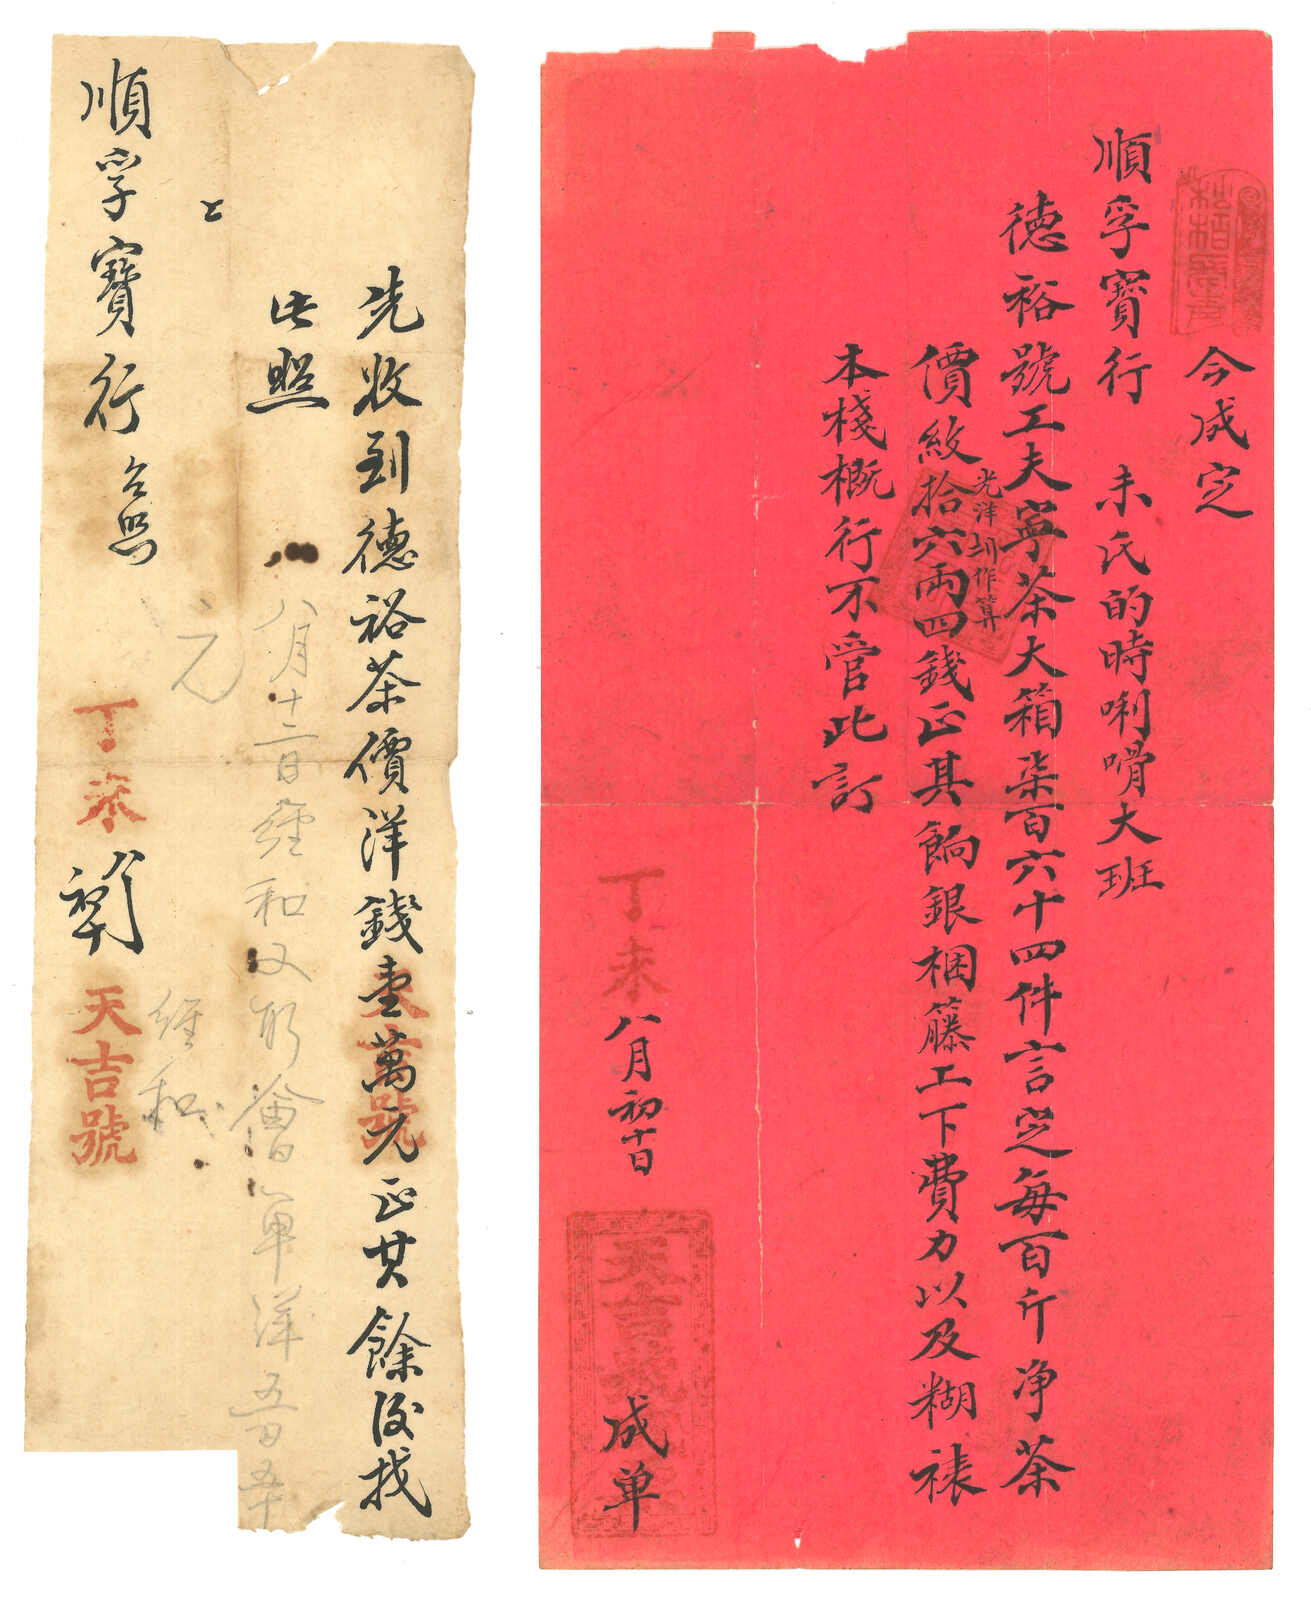 今成定
順孚寶行 未氏的時唎嗗大班
德裕號工夫寧茶大箱柒百六十四件言定每百斤净茶
光洋划作算
價紋拾六両四錢正其餉銀梱籐工下費力以及糊裱
本棧概行不管此訂
丁未八月初十日
天吉號
成单
先收到德裕茶價洋錢壹萬元正其餘後找
此照
上
順孚寶行台照
丁未
天吉號
八月十二日 和又 单洋五百五十
元
和